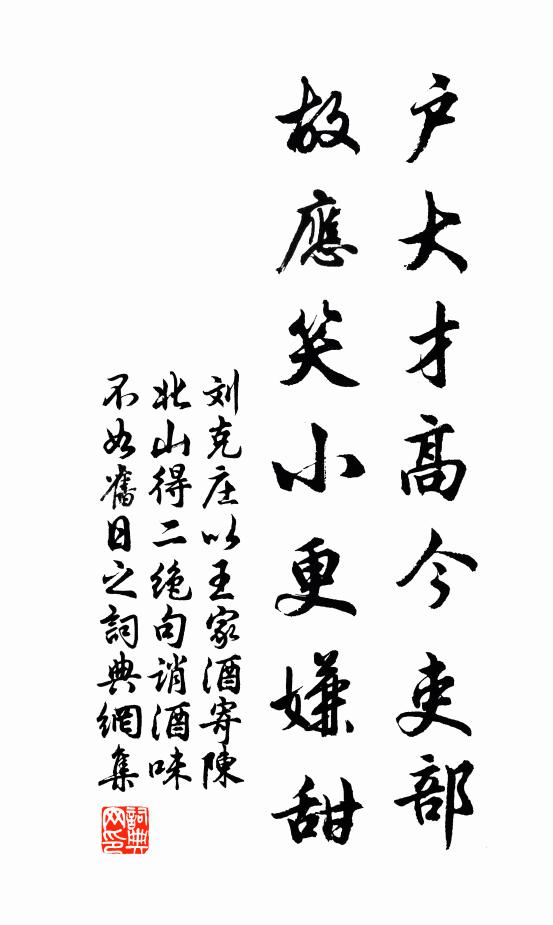 户大才高今吏部
故應笑小更嫌甜
刘克庄以王家酒寄陳
北山得二绝句诮酒味
不如舊日之詞典網集
詞典
网印